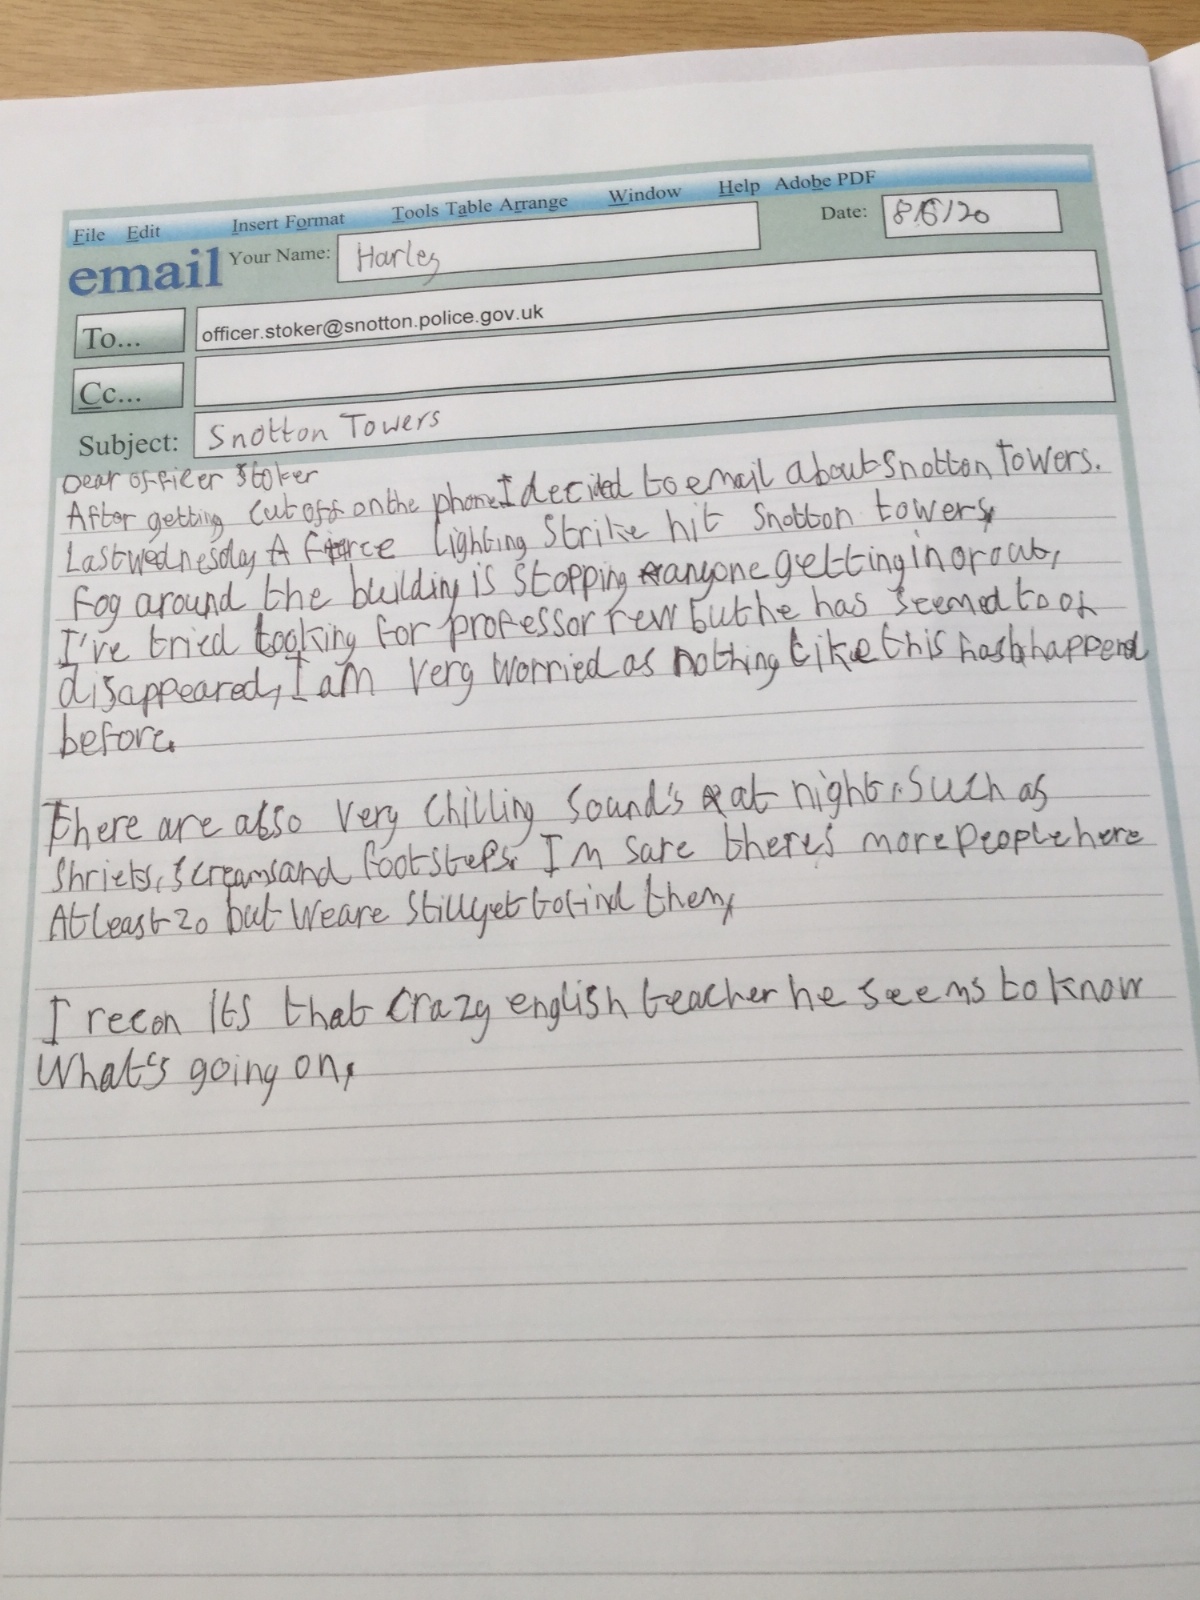 File Edit Insert Format Tools Table Arrange Window Help Adobe PDF
email Your Name: Harley Date: 8/6/20
To... officer.stoker@snotton.police.gov.uk
Cc...
Subject: Snotton Towers
Dear officer Stoker
After getting cut off on the phone I decided to email about Snotton Towers.
Last wednesday A fierce lighting Strike hit Snotton towers,
Fog around the building is stopping anyone getting in or out,
I've tried looking for professor rew but he has seemed to of
disappeared, I am very worried as nothing like this has happend
before.
there are also very chilling sound's at night, such as
Shriets, screams and footsteps. I'm sure there's more people here
At least 20 but we are still yet to find them,
I recon its that crazy english teacher he seems to know
What's going on,